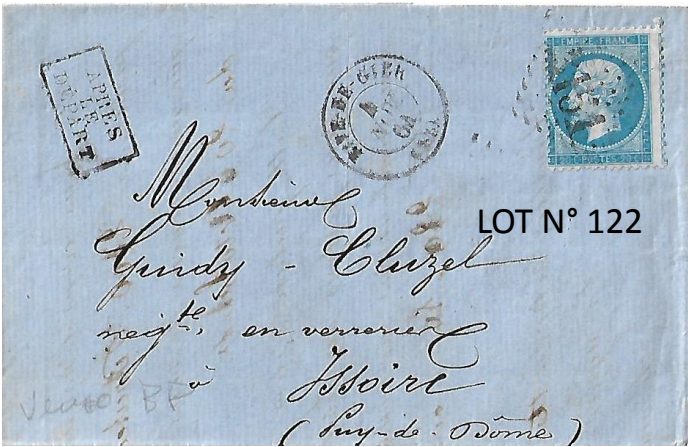 APRES
LE
DEPART
RIVE-DE-GIER
4
64
EMPIRE FRANC
20 C POSTES 20 C
LOT N° 122
Monsieur
Guidy - Cluzel
négte, en verreries
à Issoire
(Puy-de-Dôme)